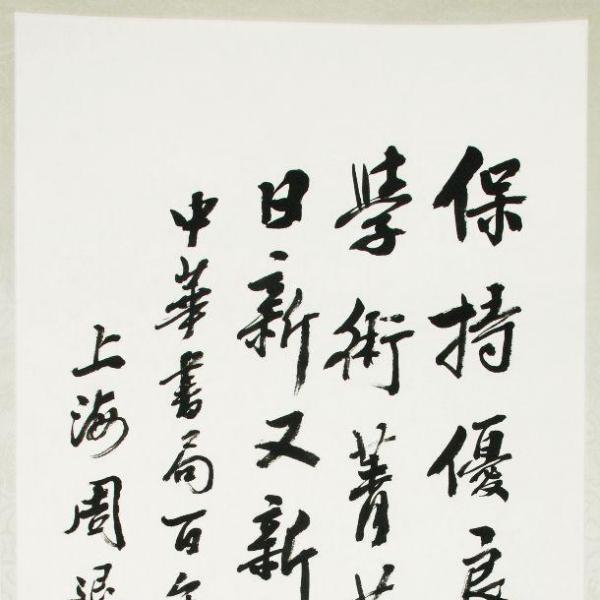 保持優良
學術菁
日新又新
中華書局百年
上海周退